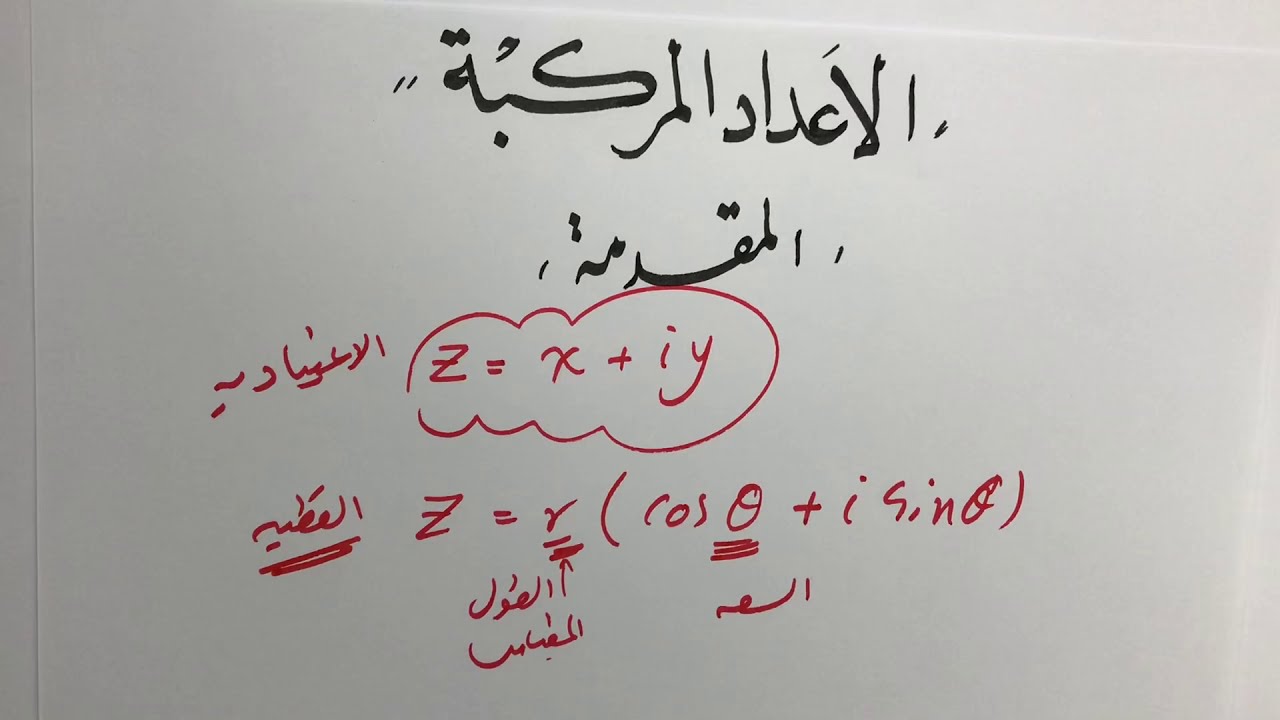 الأعداد المركبة
المقدمة
الاعتياديه z = x + iy
القطبيه Z = r ( cos θ + i sin θ )
الطول السعه
المقياس